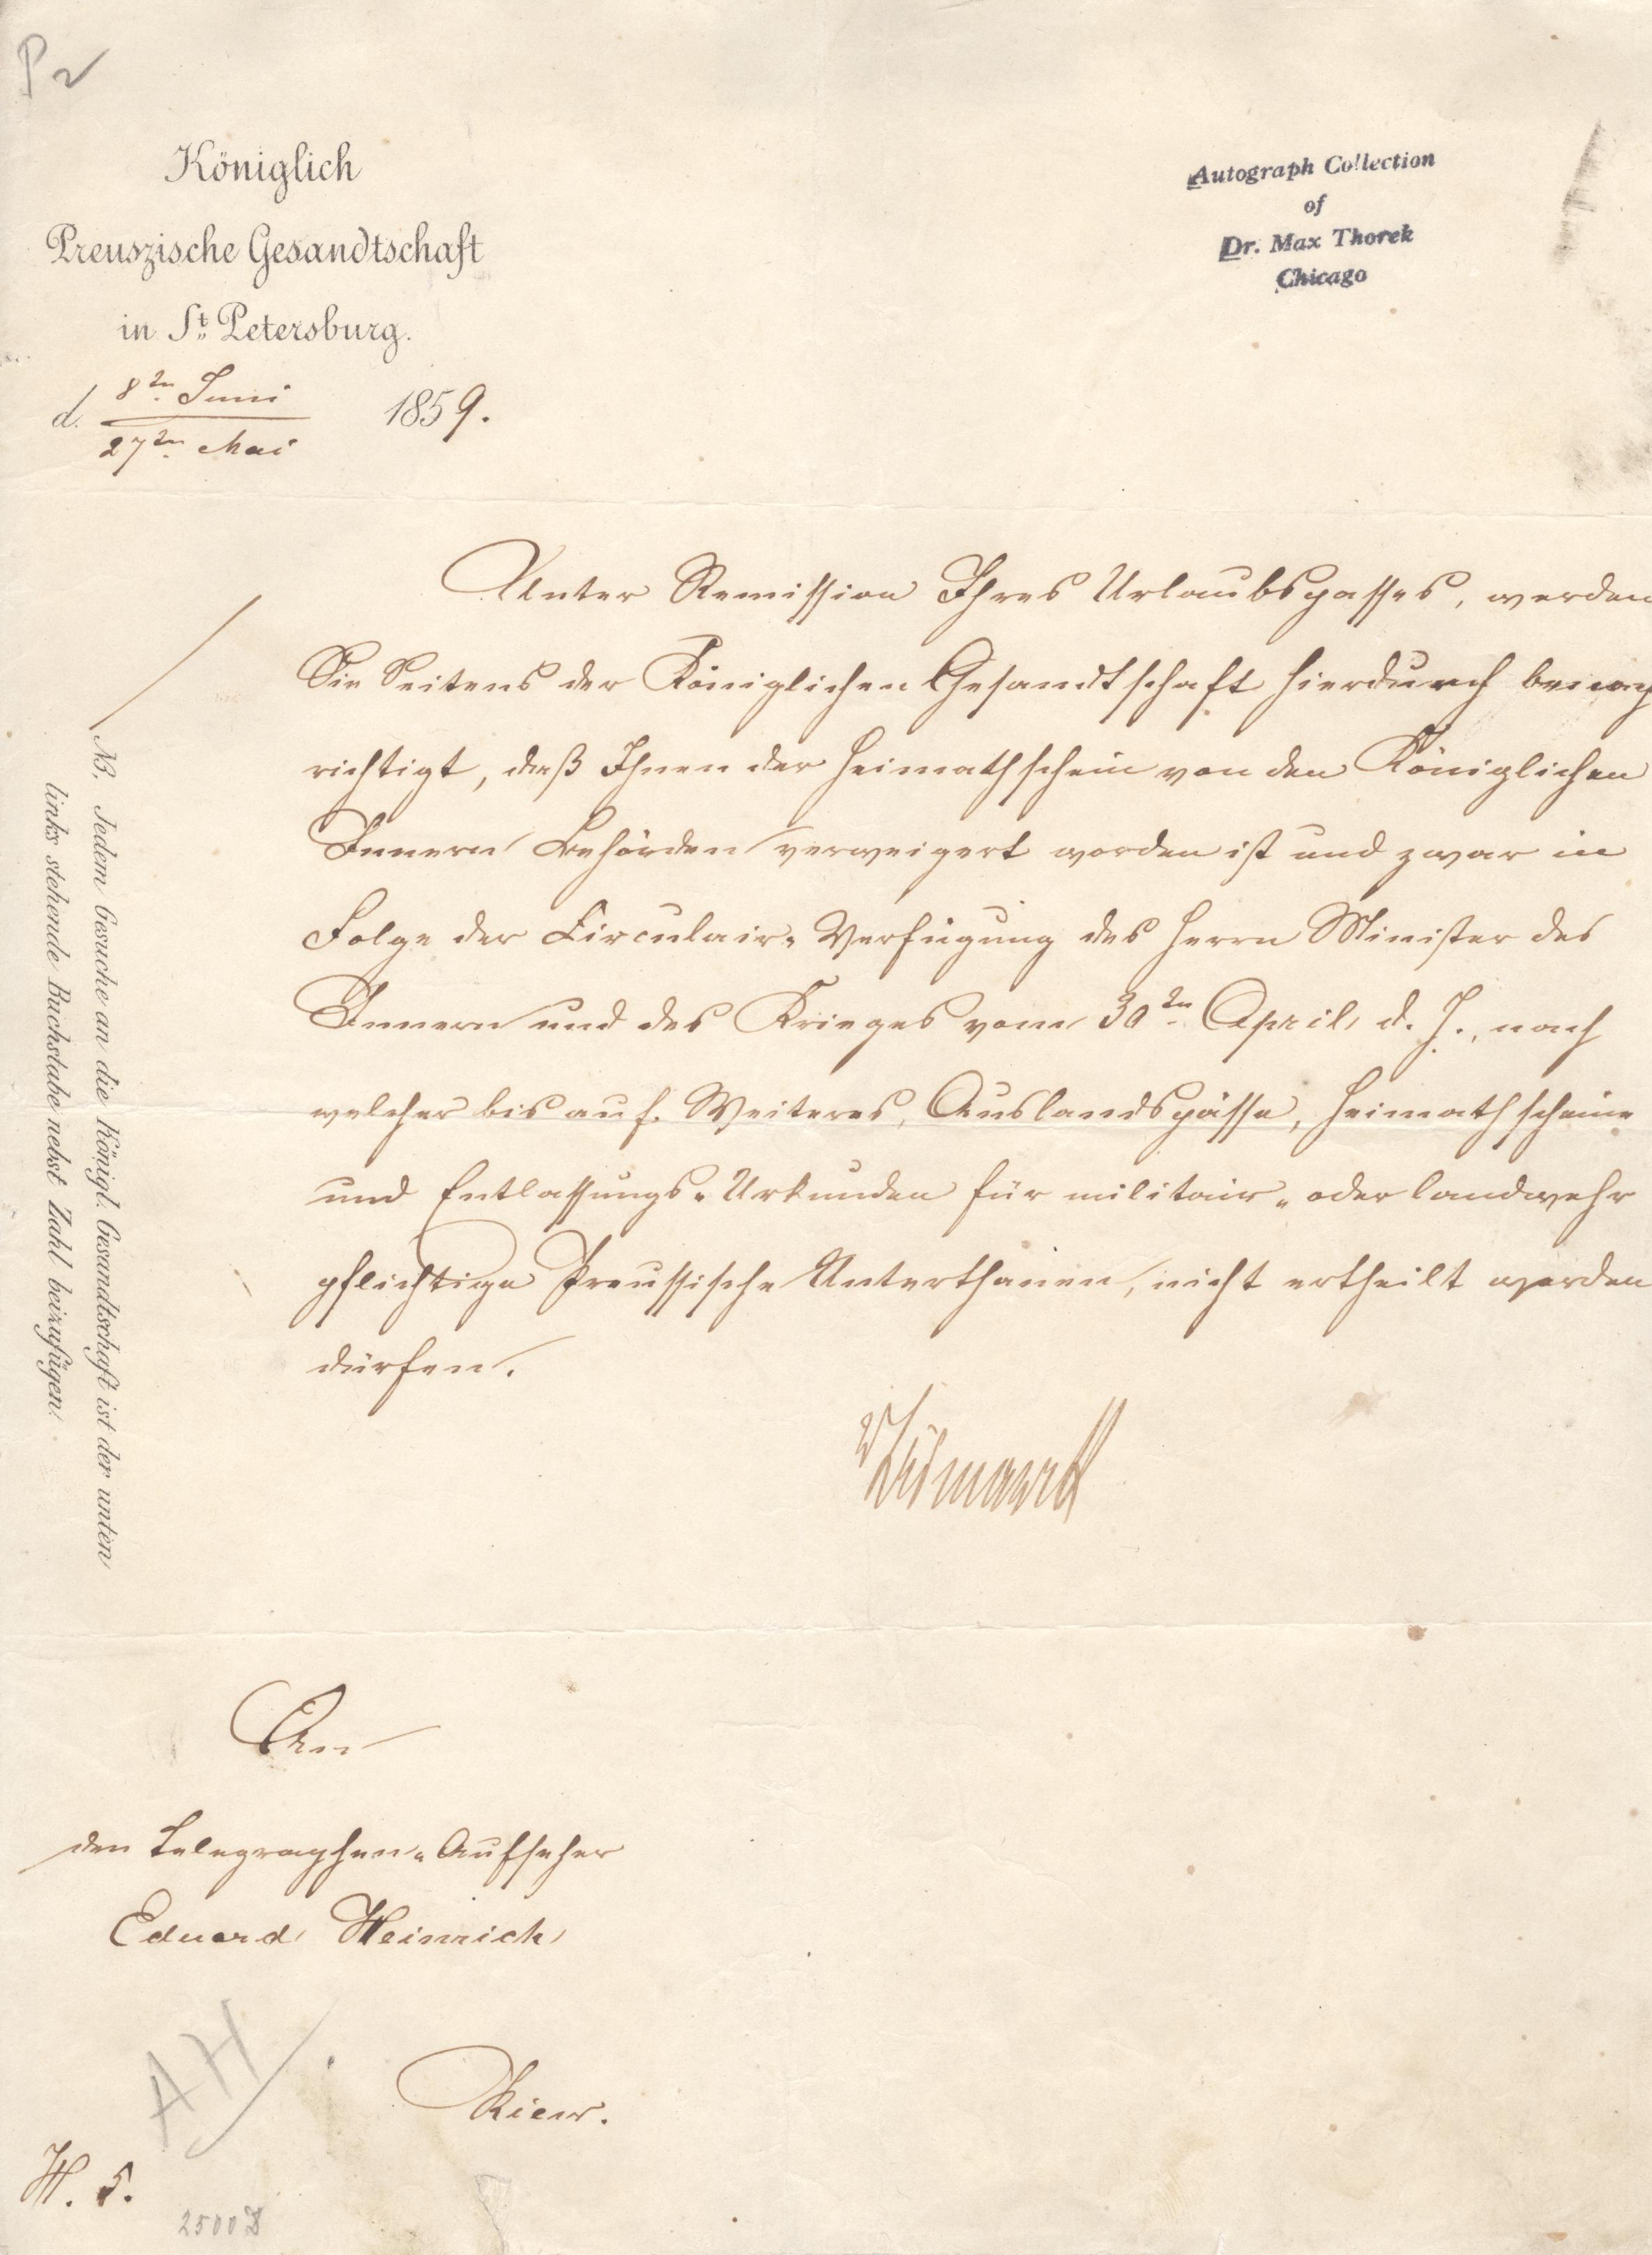 P 2
Königlich
Preuszische Gesandtschaft
in St. Petersburg.
d. 8ten Juni 1859.
27ten Mai
Autograph Collection
of
Dr. Max Thorek
Chicago
Unter Remission Ihres Urlaubspasses, werden
Sie Seitens der Königlichen Gesandtschaft hierdurch benach
richtigt, daß Ihnen der Heimathschein von den Königlichen
Innern Behörden verweigert worden ist und zwar in
Folge der Circulair-Verfügung des Herrn Minister des
Innern und des Krieges vom 30ten April d. J., nach
welcher bis auf Weiteres, Auslandspässe, Heimathscheine
und Entlassungs-Urkunden für militair- oder landwehr
pflichtige Preussische Unterthanen, nicht ertheilt werden
dürfen.
Bismarck
NB. Jedem Gesuche an die Königl. Gesandtschaft ist der unten
links stehende Buchstabe nebst Zahl beizufügen.
An
den Telegraphen-Aufseher
Eduard Heinrich
Kiew.
AH
H. 5.